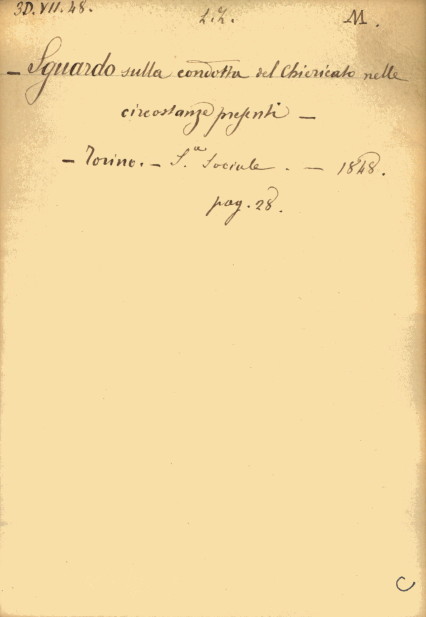 3D.VII.48. L.Z. M.
— Sguardo sulla condotta del Chiericato nelle
circostanze presenti —
— Torino. — S.ª Sociale. — 1848.
pag. 28.
C